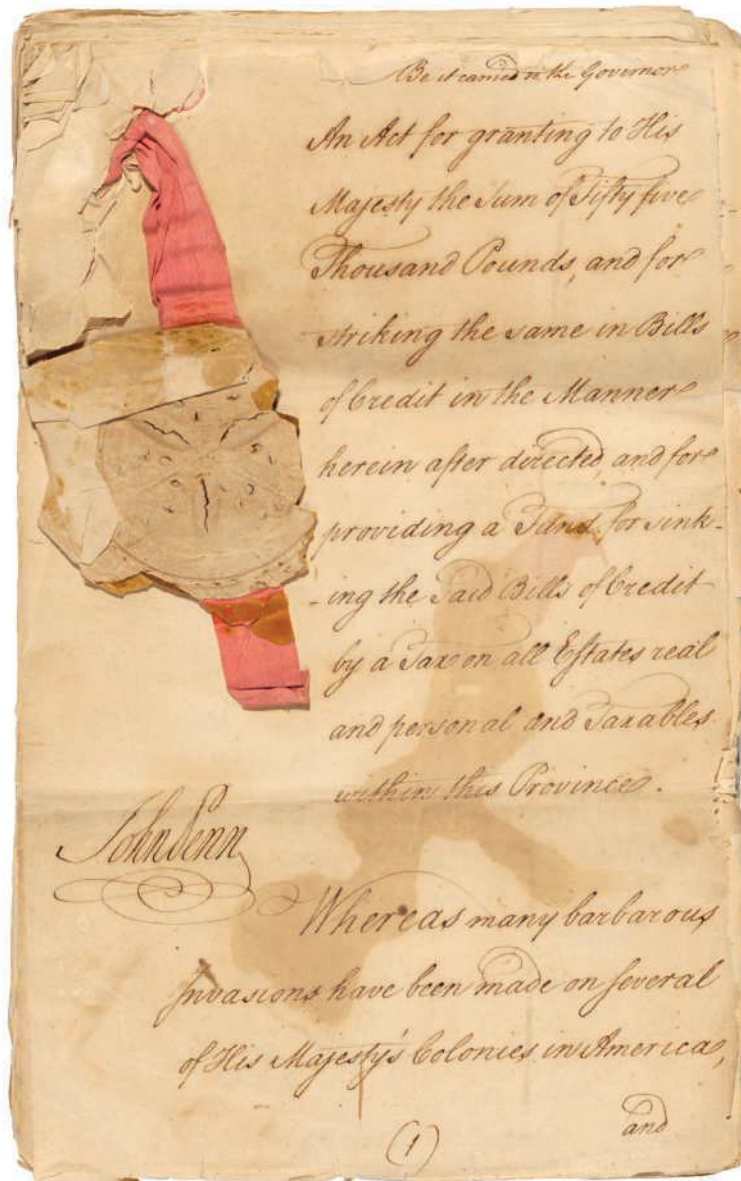 Be it carried to the Governor
An Act for granting to His
Majesty the Sum of Fifty five
Thousand Pounds, and for
striking the same in Bills
of Credit in the Manner
herein after directed, and for
providing a Fund for sink-
-ing the Said Bills of Credit
by a Tax on all Estates real
and personal and Taxables
within this Province.
John Penn
Whereas many barbarous
Invasions have been made on several
of His Majesty's Colonies in America,
and
(1)